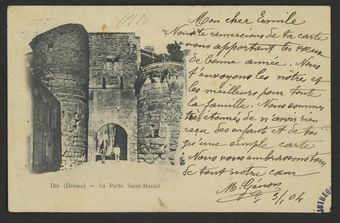 Mon cher Emile
Nous te remercions de ta carte
nous apportant tes vœux
de bonne année. Nous
t'envoyons les nôtres et
les meilleurs pour toute
la famille. Nous sommes
très étonnés de n'avoir rien
reçu des enfants et de toi
qu'une simple carte
Nous vous embrassons tous
de tout notre cœur
3/1/04
DIE (Drôme) — La Porte Saint-Marcel